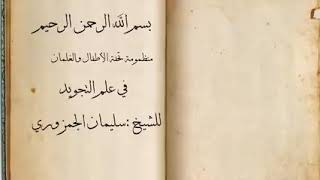 بسم الله الرحمن الرحيم
منظومة تحفة الأطفال والغلمان
في علم التجويد
للشيخ :سليمان الجمزوري